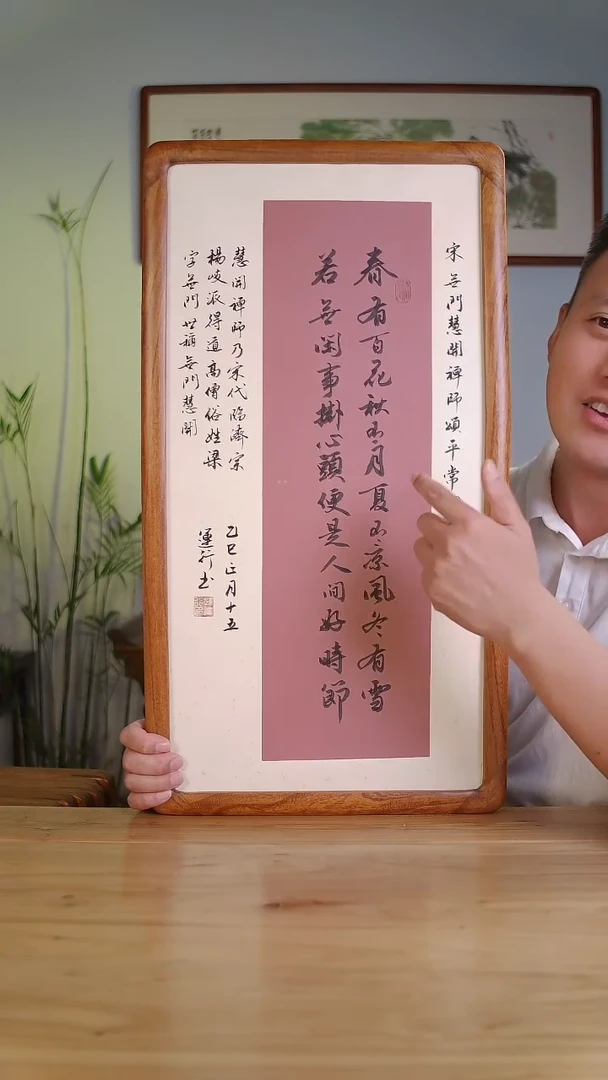 宋無門慧開禪師頌平常
春有百花秋有月夏有凉風冬有雪
若無閑事掛心頭便是人間好時節
慧開禪師乃宋代臨濟宗
楊岐派得道高僧俗姓梁
字無門世稱無門慧開
乙巳正月十五